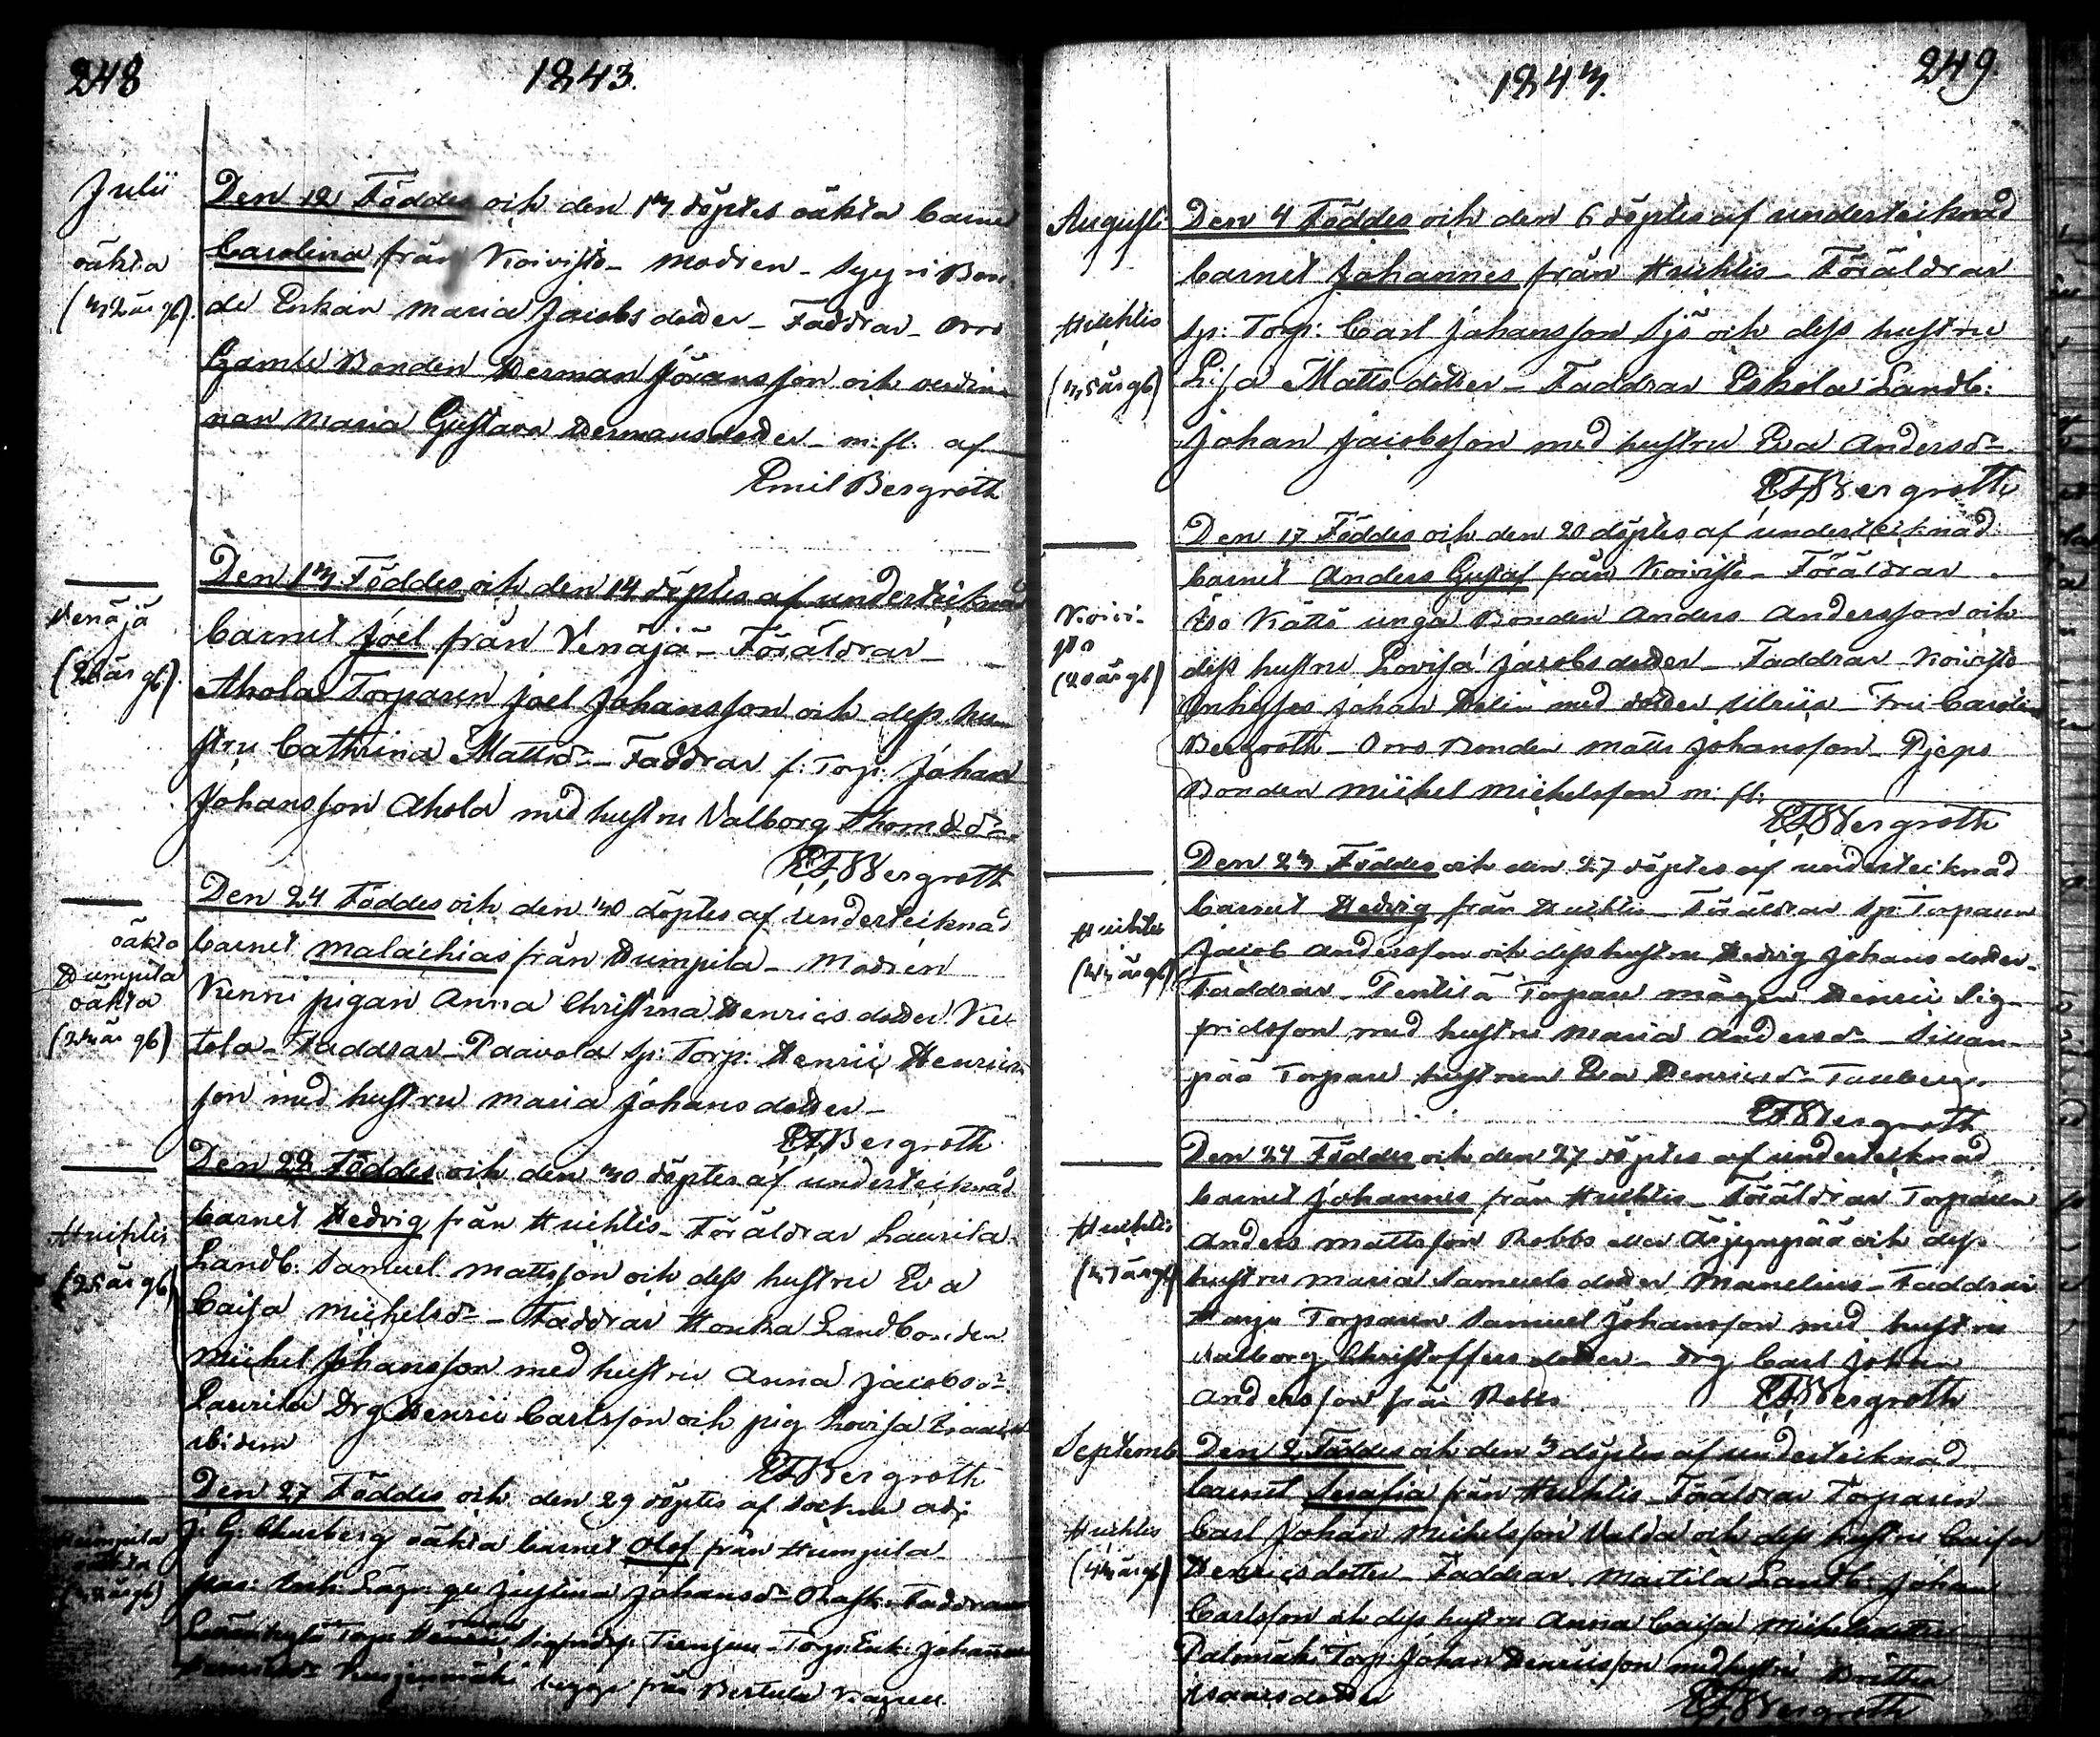 248
1843.
Julii
oäkta
(32 år gl).
Den 12 Föddes och den 13 döptes oäkta barnet
Carolina från Koivisto - Modren - Syyri Bon-
de Enkan Maria Jacobsdotter - Faddrar - Orro
Gamle Bonden Herman Jöransson och värdin-
nan Maria Gustava Hermansdotter - m: fl: af
Emil Bergroth
Venäjä
(26 år gl).
Den 13 Föddes och den 14 döptes af undertecknad
barnet Joel från Venäjä - Föräldrar -
Ahola Torparen Joel Johansson och dess hu-
stru Cathrina Mattsdr - Faddrar f: Torp: Johan
Johansson Ahola med hustru Valborg Thomædr
EFBergroth
oäkta
Humpila
oäkta
(23 år gl)
Den 24 Föddes och den 30 döptes af undertecknad
barnet Malachias från Humpila - Modren
pigan Anna Christina Henricsdotter
tola - Faddrar - Paavola Sp: Torp: Henric Henrics-
son med hustru Maria Johansdotter -
EFBergroth
Huihtis
(25 år gl)
Den 22 Föddes och den 30 döptes af undertecknad
barnet Hedvig från Huihtis - Föräldrar Laurila
Landb: Samuel Mattsson och dess hustru Eva
Caisa Michelsdr - Faddrar Honka Landbonden
Michel Johansson med hustru Anna Jacobsdr
Laurila Drg Henric Carlsson och pig Lovisa
ibidem
EFBergroth
Humpila
oäkta
Den 27 Föddes och den 29 döptes af Sockne adj:
J: G: oäkta barnet Olof från Humpila
Justina Johansdr Faddrar
Torp: Henric Torp: Enk: Johanna
från Bertula
1843.
249.
Augusti
Huihtis
(35 år gl)
Den 4 Föddes och den 6 döptes af undertecknad
barnet Johannes från Huihtis - Föräldrar
Sp: Torp: Carl Johansson Sjö och dess hustru
Lisa Mattsdotter - Faddrar Eskola Landb:
Johan Jacobsson med hustru Eva Andersdr
EFBergroth
Koivi-
sto
(20 år gl)
Den 17 Föddes och den 20 döptes af undertecknad
barnet Anders Gustaf från Koivisto - Föräldrar
Iso Kättö unga Bonden Anders Andersson och
dess hustru Lovisa Jacobsdotter - Faddrar - Koivisto
Inhyses Johan Helin med dotter Ulrica - Fru Carolina
Bergroth - Orro Bonden Matts Johansson -
Bonden Michel Michelsson m: fl:
EFBergroth
Huihtis
Den 23 Föddes och den 27 döptes af undertecknad
barnet Hedvig från Huihtis - Föräldrar Sp: Torparen
Jacob Andersson och dess hustru Hedvig Johansdotter -
Faddrar - Penttilä Torpare mågen Henric Sig-
fridsson med hustru Maria Andersdr - Sillan-
pää Torpare hustrun Eva Henricsdr
EFBergroth
Huihtis
(37 år gl)
Den 24 Föddes och den 27 döptes af undertecknad
barnet Johannes från Huihtis - Föräldrar Torparen
Anders Mattsson Robbs eller och dess
hustru Maria Samuelsdotter Manelius - Faddrar
Harju Torparen Samuel Johansson med hustru
Valborg Christoffersdotter - Drg Carl Johan
Andersson från Robbs
EFBergroth
Septemb
Huihtis
Den 2 Föddes och den 3 döptes af undertecknad
barnet Serafia från Huihtis Föräldrar Torparen
Carl Johan Michelsson Valda och dess hustru Caisa
Henricsdotter - Faddrar Marttila Landb: Johan
Carlsson och dess hustru Anna Caisa Michelsdotter
Palomäki Torp: Johan Henricsson med hustru
Isaacsdotter
EFBergroth